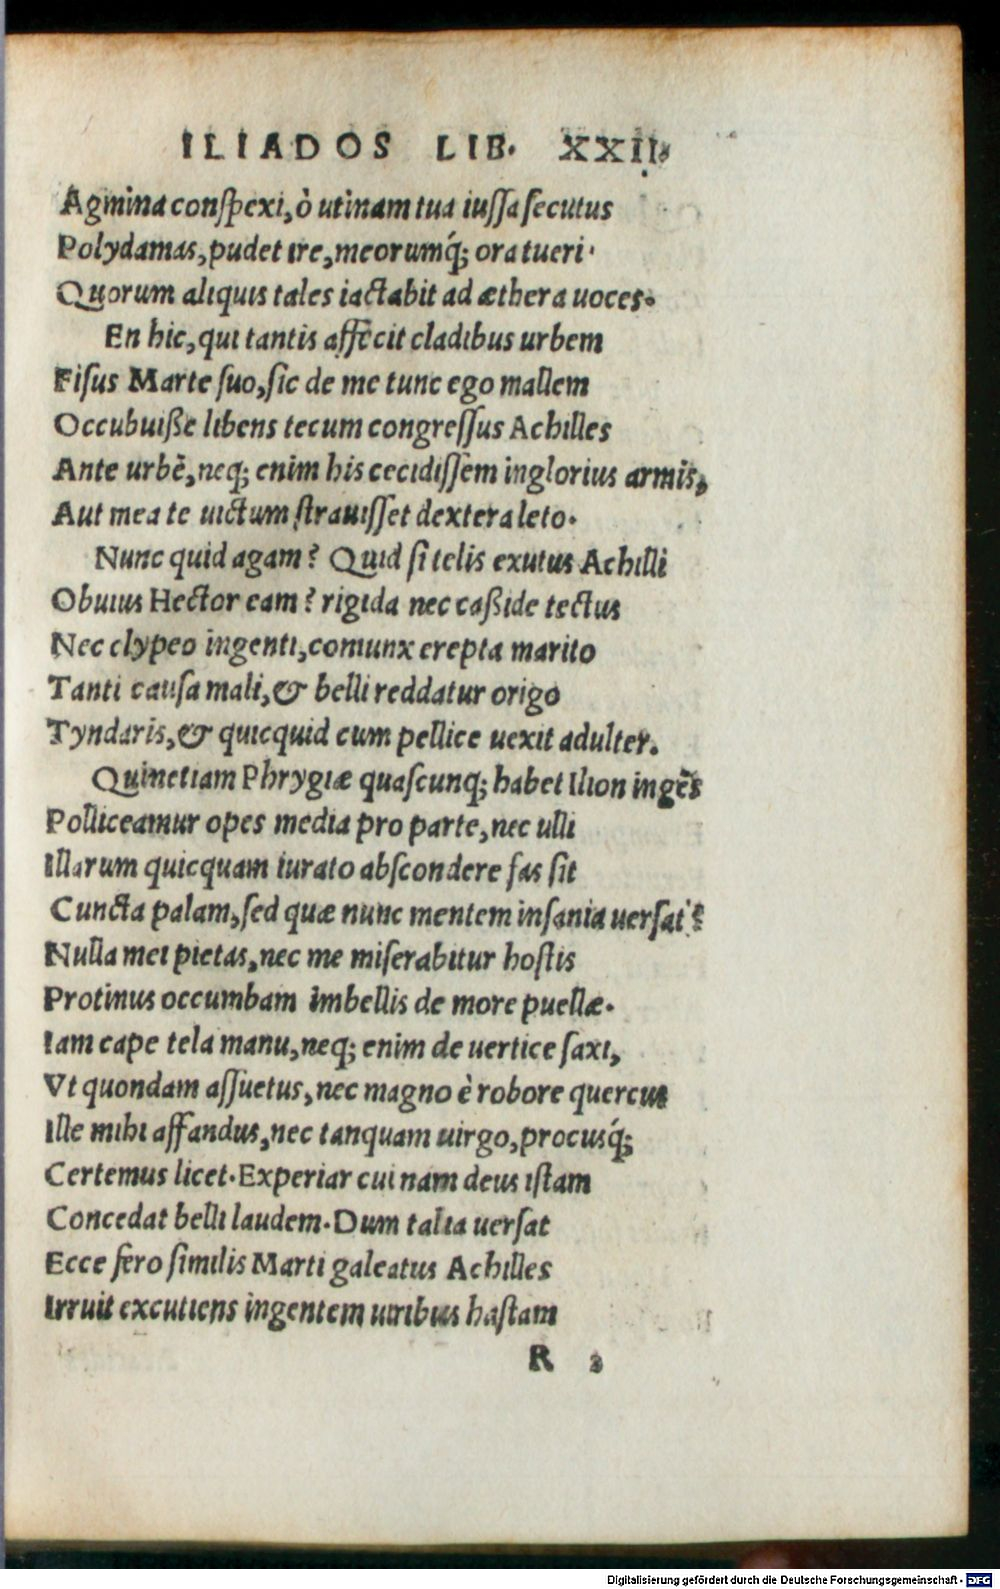 ILIADOS LIB. XXII.
Agmina conſpexi, ò utinam tua iuſſa ſecutus
Polydamas, pudet ire, meorumq́; ora tueri.
Quorum aliquis tales iactabit ad æthera uoces.
En hic, qui tantis affecit cladibus urbem
Fiſus Marte ſuo, ſic de me tunc ego mallem
Occubuiße libens tecum congreſſus Achilles
Ante urbẽ, neq; enim his cecidiſſem inglorius armis,
Aut mea te uictum ſtrauiſſet dextera leto.
Nunc quid agam? Quid ſi telis exutus Achilli
Obuius Hector eam? rigida nec caßide tectus
Nec clypeo ingenti, coniunx erepta marito
Tanti cauſa mali, & belli reddatur origo
Tyndaris, & quicquid cum pellice uexit adulter.
Quinetiam Phrygiæ quaſcunq; habet Ilion ingẽs
Polliceamur opes media pro parte, nec ulli
Illarum quicquam iurato abſcondere fas ſit
Cuncta palam, ſed quæ nunc mentem inſania uerſat?
Nulla mei pietas, nec me miſerabitur hoſtis
Protinus occumbam imbellis de more puellæ.
Iam cape tela manu, neq; enim de uertice ſaxi,
Vt quondam aſſuetus, nec magno è robore quercus
Ille mihi affandus, nec tanquam uirgo, procusq́;
Certemus licet. Experiar cui nam deus iſtam
Concedat belli laudem. Dum talia uerſat
Ecce fero ſimilis Marti galeatus Achilles
Irruit excutiens ingentem uiribus haſtam
R 2
Digitalisierung gefördert durch die Deutsche Forschungsgemeinschaft - DFG